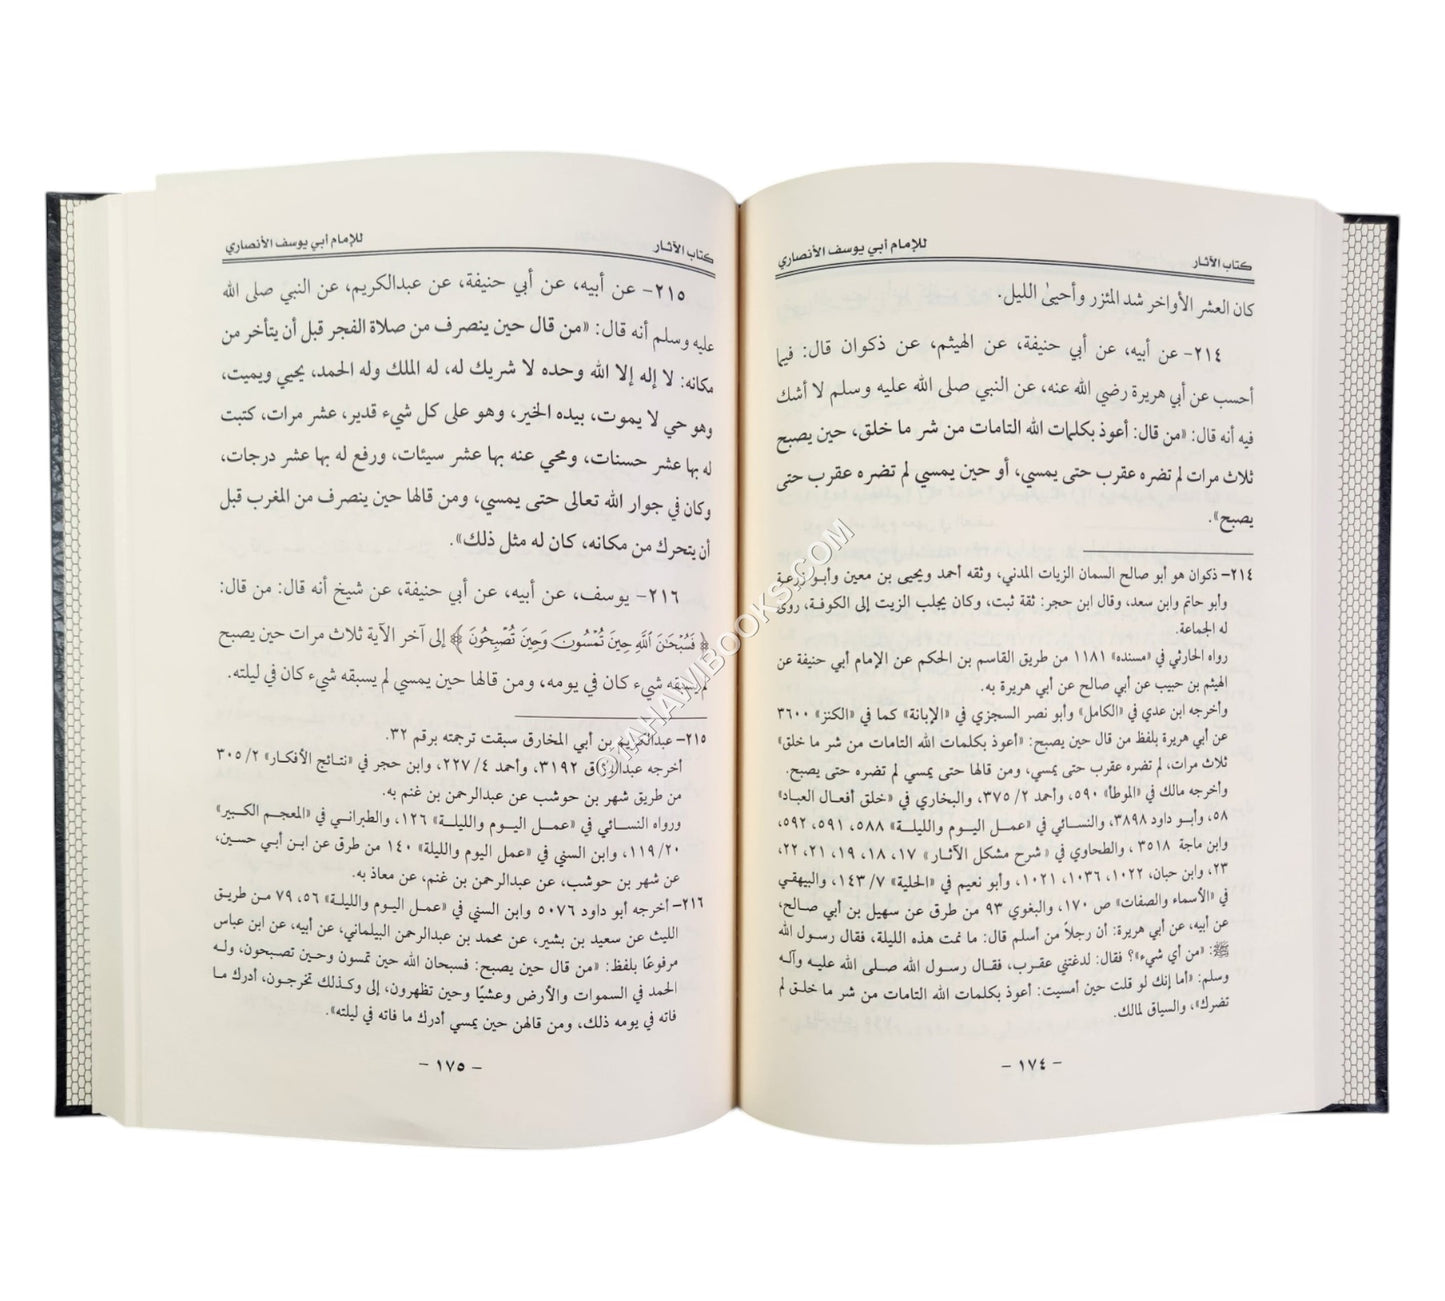 كتاب الآثار
للإمام أبي يوسف الأنصاري
كان العشر الأواخر شد المئزر وأحيىٰ الليل.
٢١٤- عن أبيه، عن أبي حنيفة، عن الهيثم، عن ذكوان قال: فيما
أحسب عن أبي هريرة رضي الله عنه، عن النبي صلى الله عليه وسلم لا أشك
فيه أنه قال: «من قال: أعوذ بكلمات الله التامات من شر ما خلق، حين يصبح
ثلاث مرات لم تضره عقرب حتى يمسي، أو حين يمسي لم تضره عقرب حتى
يصبح».
٢١٤- ذكوان هو أبو صالح السمان الزيات المدني، وثقه أحمد ويحيى بن معين وأبو زرعة
وأبو حاتم وابن سعد، وقال ابن حجر: ثقة ثبت، وكان يجلب الزيت إلى الكوفة، روى
له الجماعة.
رواه الحارثي في «مسنده» ١١٨١ من طريق القاسم بن الحكم عن الإمام أبي حنيفة عن
الهيثم بن حبيب عن أبي صالح عن أبي هريرة به.
وأخرجه ابن عدي في «الكامل» وأبو نصر السجزي في «الإبانة» كما في «الكنز» ٣٦٠٠
عن أبي هريرة بلفظ من قال حين يصبح: «أعوذ بكلمات الله التامات من شر ما خلق»
ثلاث مرات، لم تضره عقرب حتى يمسي، ومن قالها حتى يمسي لم تضره حتى يصبح.
وأخرجه مالك في «الموطأ» ٥٩٠، وأحمد ٢/ ٣٧٥، والبخاري في «خلق أفعال العباد»
٥٨، وأبو داود ٣٨٩٨، والنسائي في «عمل اليوم والليلة» ٥٨٨، ٥٩١، ٥٩٢،
وابن ماجة ٣٥١٨ ، والطحاوي في «شرح مشكل الآثار» ١٧، ١٨، ١٩، ٢١، ٢٢،
٢٣، وابن حبان، ١٠٢٢، ١٠٣٦، ١٠٢١، وأبو نعيم في «الحلية» ٧/ ١٤٣، والبيهقي
في «الأسماء والصفات» ص ١٧٠، والبغوي ٩٣ من طرق عن سهيل بن أبي صالح،
عن أبيه، عن أبي هريرة: أن رجلاً من أسلم قال: ما نمت هذه الليلة، فقال رسول الله
ﷺ: «من أي شيء»؟ فقال: لدغتني عقرب، فقال رسول الله صلى الله عليه وآله
وسلم: «أما إنك لو قلت حين أمسيت: أعوذ بكلمات الله التامات من شر ما خلق لم
تضرك»، والسياق لمالك.
- ١٧٤ -
كتاب الآثار
للإمام أبي يوسف الأنصاري
٢١٥- عن أبيه، عن أبي حنيفة، عن عبدالكريم، عن النبي صلى الله
عليه وسلم أنه قال: «من قال حين ينصرف من صلاة الفجر قبل أن يتأخر من
مكانه: لا إله إلا الله وحده لا شريك له، له الملك وله الحمد، يحيي ويميت،
وهو حي لا يموت، بيده الخير، وهو على كل شيء قدير، عشر مرات، كتبت
له بها عشر حسنات، ومحي عنه بها عشر سيئات، ورفع له بها عشر درجات،
وكان في جوار الله تعالى حتى يمسي، ومن قالها حين ينصرف من المغرب قبل
أن يتحرك من مكانه، كان له مثل ذلك».
٢١٦- يوسف، عن أبيه، عن أبي حنيفة، عن شيخ أنه قال: من قال:
﴿فَسُبْحَٰنَ ٱللَّهِ حِينَ تُمْسُونَ وَحِينَ تُصْبِحُونَ﴾ إلى آخر الآية ثلاث مرات حين يصبح
لم يسبقه شيء كان في يومه، ومن قالها حين يمسي لم يسبقه شيء كان في ليلته.
٢١٥- عبدالكريم بن أبي المخارق سبقت ترجمته برقم ٣٢.
أخرجه عبدالرزاق ٣١٩٢، وأحمد ٤/ ٢٢٧، وابن حجر في «نتائج الأفكار» ٢/ ٣٠٥
من طريق شهر بن حوشب عن عبدالرحمن بن غنم به.
ورواه النسائي في «عمل اليوم والليلة» ١٢٦، والطبراني في «المعجم الكبير»
٢٠/ ١١٩، وابن السني في «عمل اليوم والليلة» ١٤٠ من طرق عن ابن أبي حسين،
عن شهر بن حوشب، عن عبدالرحمن بن غنم، عن معاذ به.
٢١٦- أخرجه أبو داود ٥٠٧٦ وابن السني في «عمل اليوم والليلة» ٥٦، ٧٩ من طريق
الليث عن سعيد بن بشير، عن محمد بن عبدالرحمن البيلماني، عن أبيه، عن ابن عباس
مرفوعًا بلفظ: «من قال حين يصبح: فسبحان الله حين تمسون وحين تصبحون، وله
الحمد في السموات والأرض وعشيًا وحين تظهرون، إلى وكذلك تخرجون، أدرك ما
فاته في يومه ذلك، ومن قالهن حين يمسي أدرك ما فاته في ليلته».
- ١٧٥ -
©TAHAWIBOOKS.COM